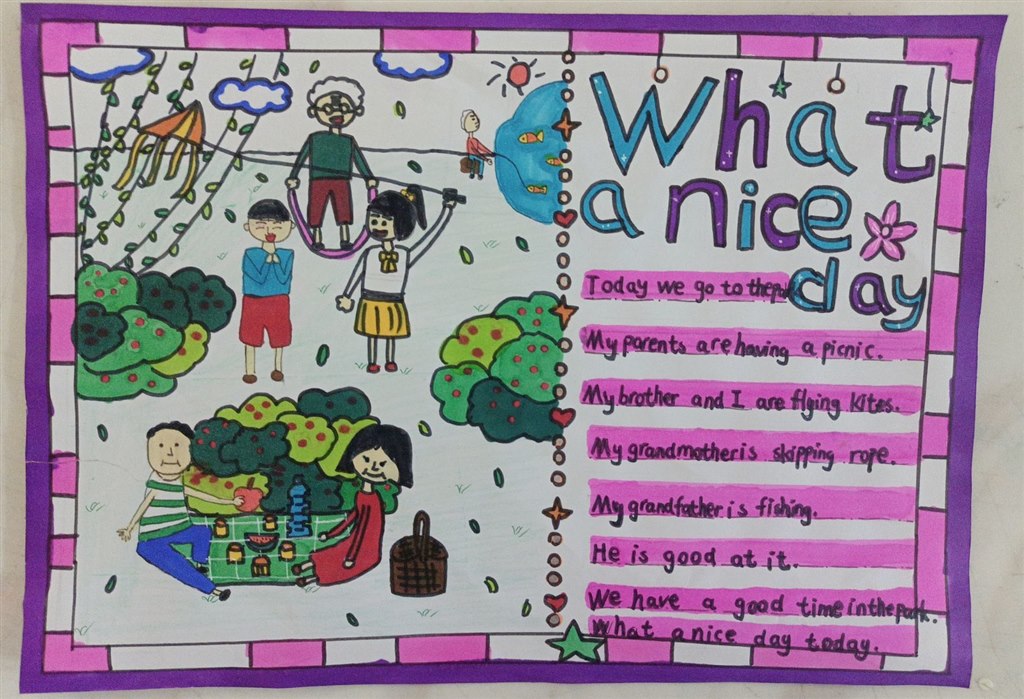 What
a nice
day
Today we go to the park
My parents are having a picnic.
My brother and I are flying kites.
My grandmother is skipping rope.
My grandfather is fishing.
He is good at it.
We have a good time in the park.
What a nice day today.